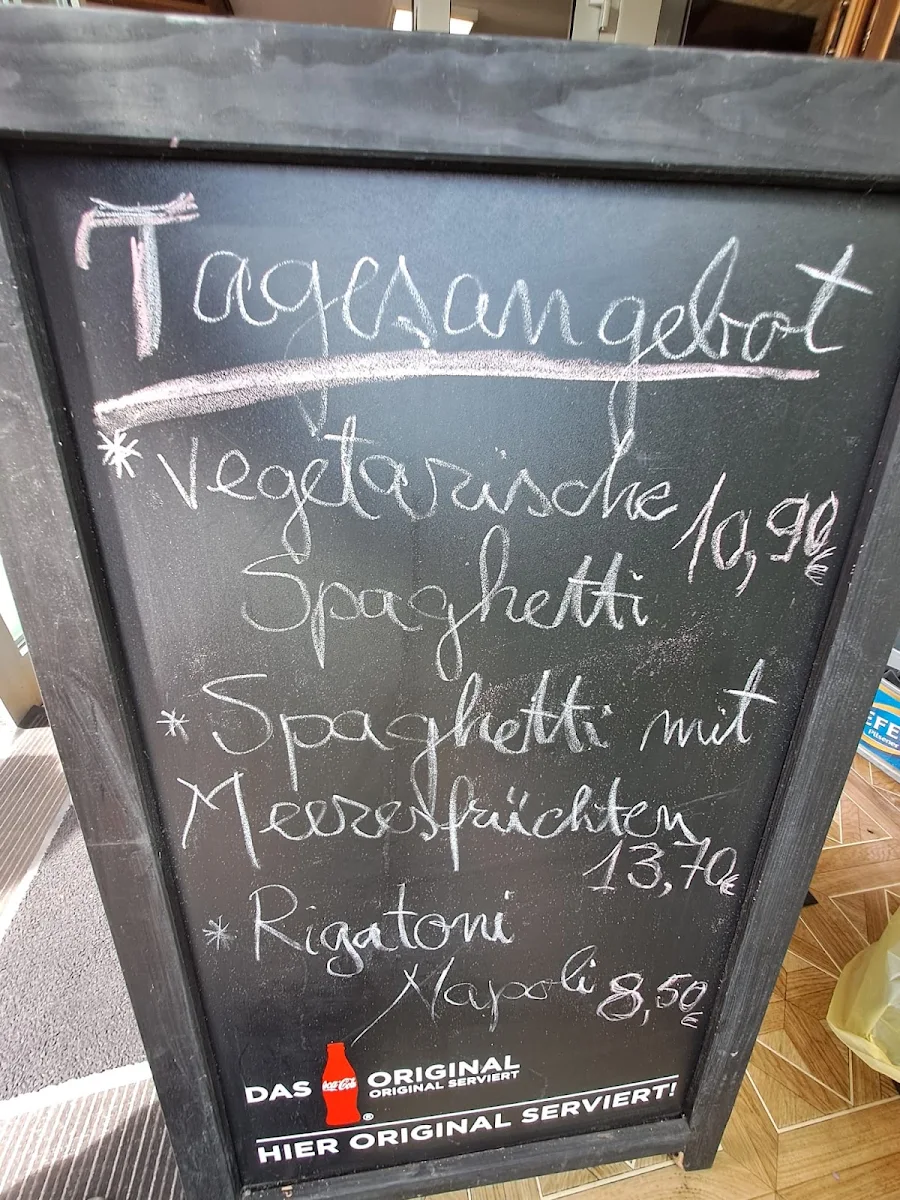 Tagesangebot
* Vegetarische 10,90€
Spaghetti
* Spaghetti mit
Meeresfrüchten
13,70€
* Rigatoni
Napoli 8,50€
DAS Coca-Cola ® ORIGINAL
ORIGINAL SERVIERT
HIER ORIGINAL SERVIERT!
EFE
Pilsener